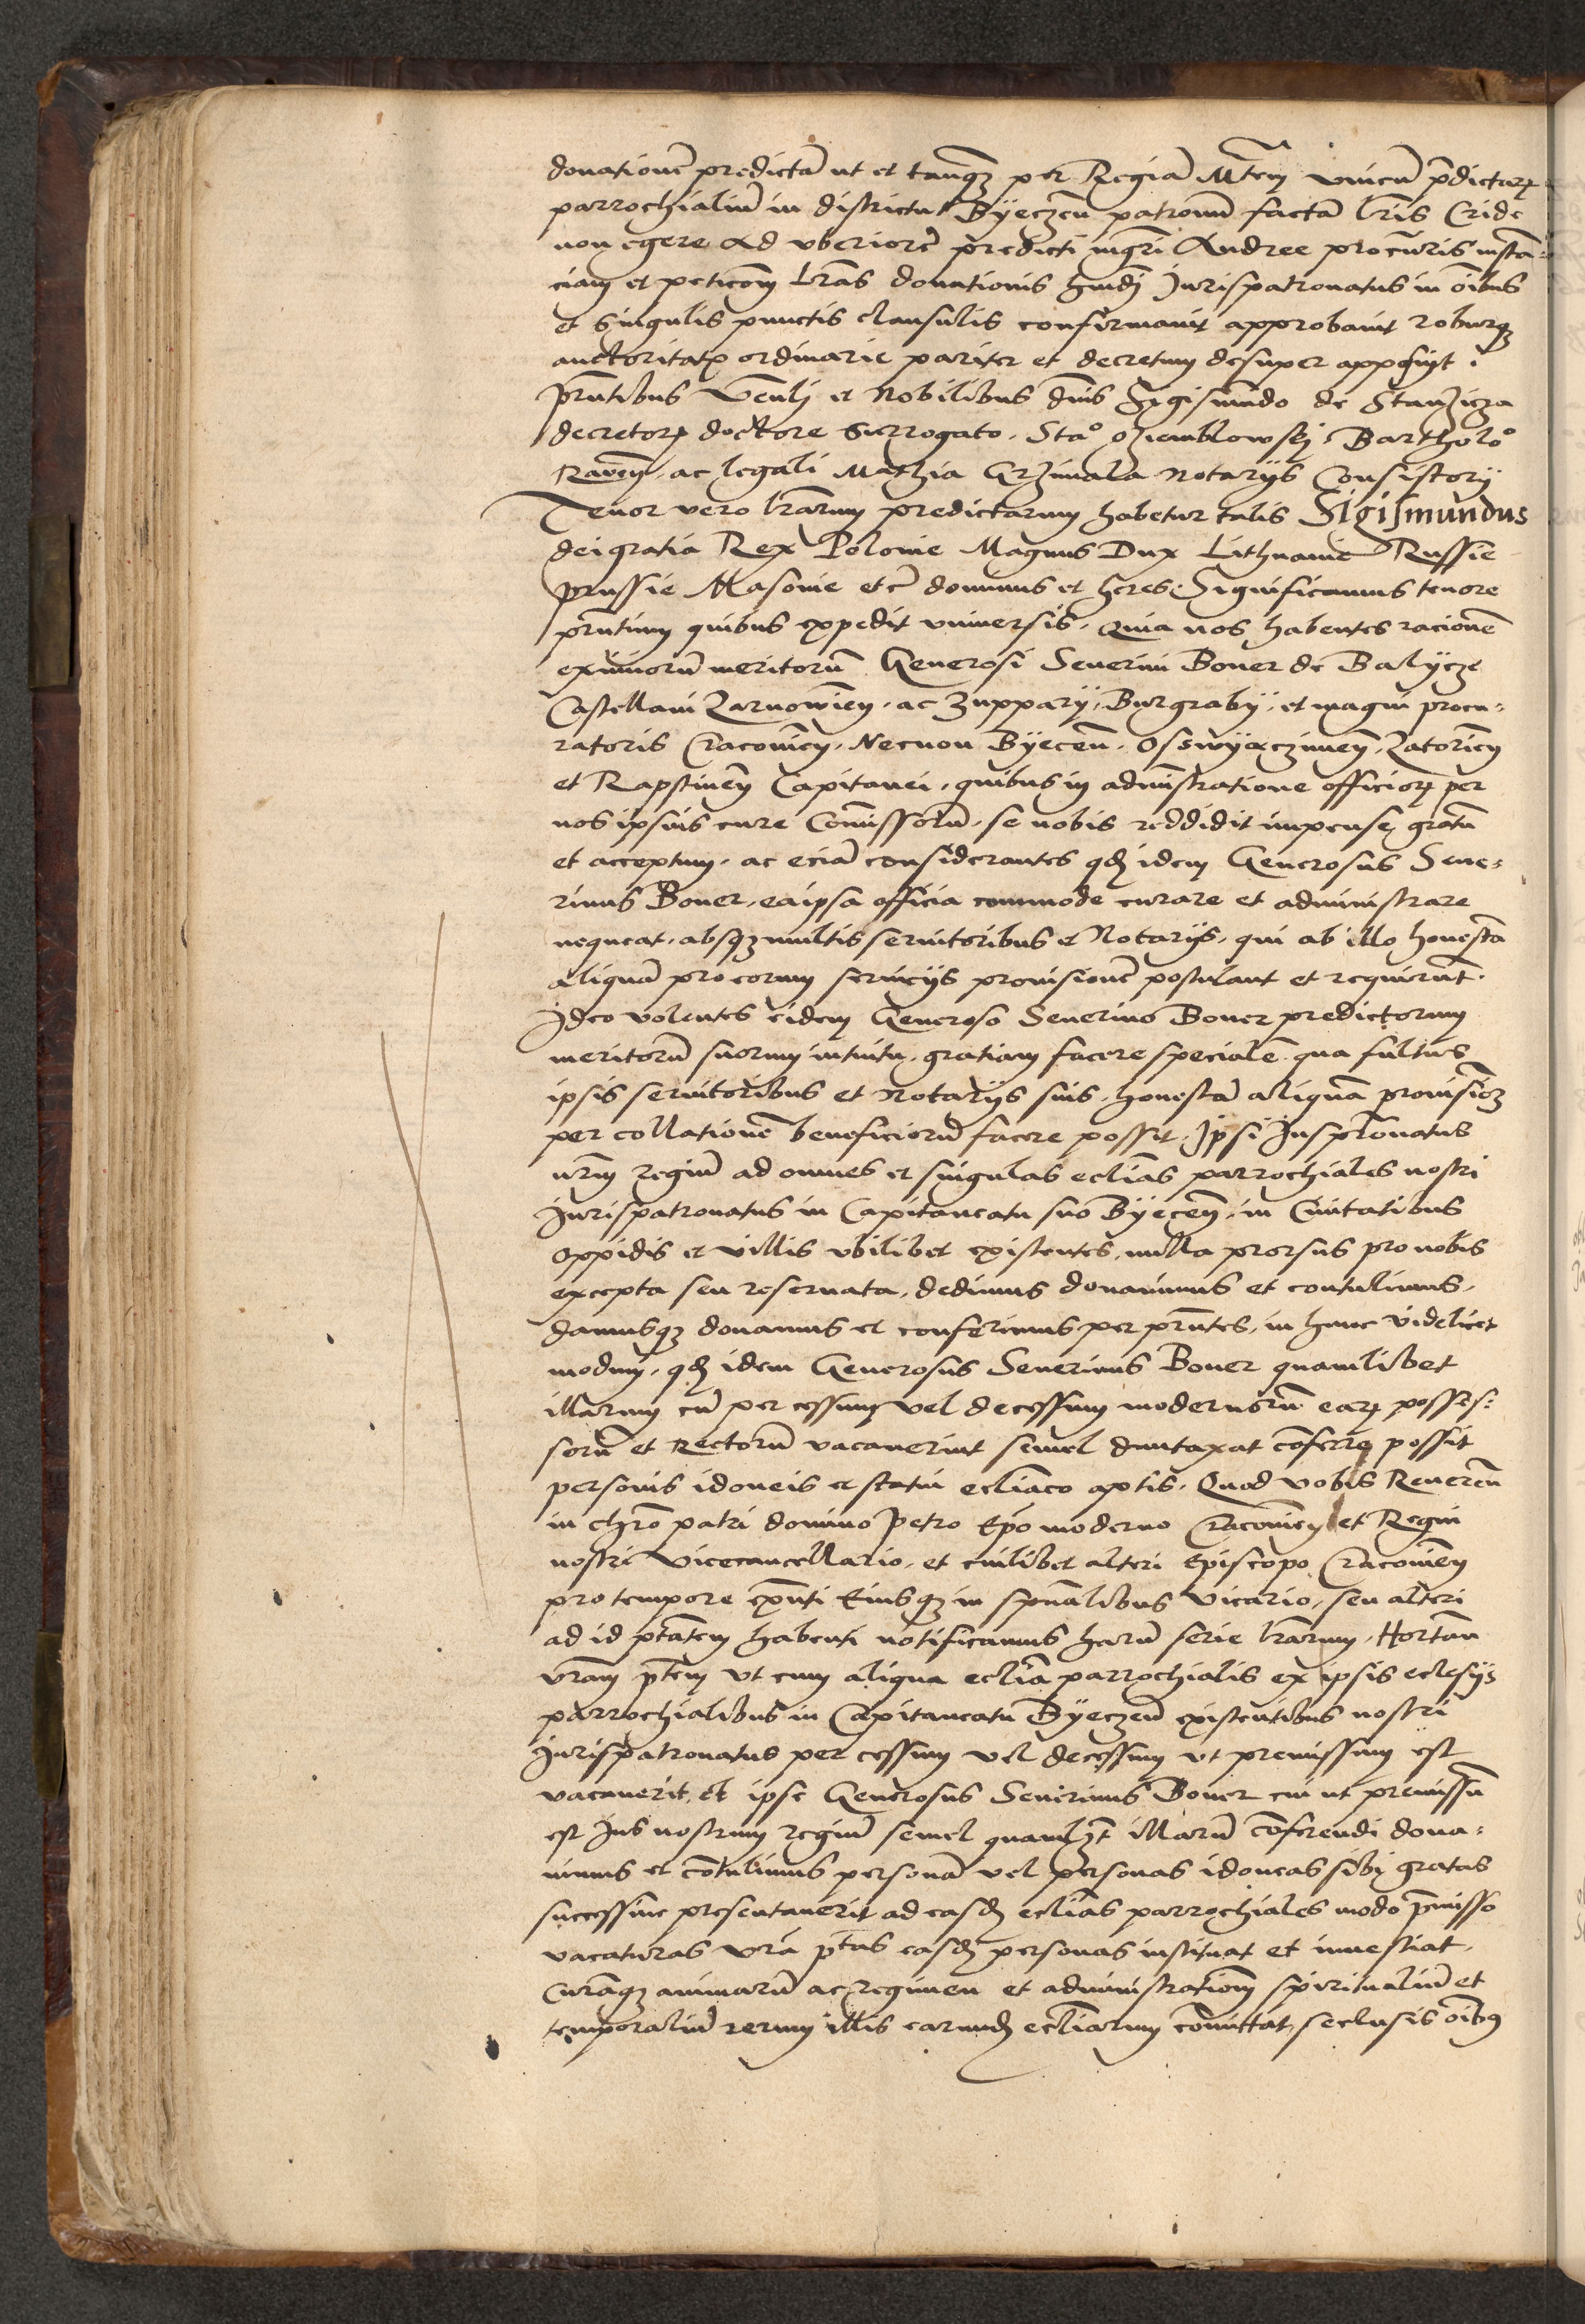 donationē predictā ut et tanqȝ per Regiā Mtem vnicū p̄dictarꝝ
parrochialiū in districtu Byeczeñ patronū factā lr̄is Cride
non egere Ad vberiorē predicti mgr̄i Andree procūris instā-
ciam et peticōm lrās donationis hmōi Jurispatronatus in oībus
et singulis punctis clausulis confirmauit approbauit roburqȝ
auctoritatis ordinarie pariter et decretum desuper apposuit.
Pr̄ntibus Ven̄li et Nobilibus dn̄is Sigismūdo de Stanzicza
decretorꝝ doctore Surrogato. Stao Bartholo
ac legali Mathia Grzimala Notarijs Consistorij
Tenor vero lrārum predictarum habetur talis Sigismundus
dei gratia Rex Polonie Magnus Dux Lithuanie Russie
prussie Masouie etc̄ dominus et heres. Significamus tenore
pr̄ntium quibus expedit vniuersis. Quia nos habentes racionē
eximiorū meritorū Generosi Seuerini Boner de Balycze
Castellani Zarnowień. ac Zupparij, Burgrabij, et magni procu-
ratoris Cracouień. Necnon Byeceñ. Osswyaczimeñ. Zatorień
et Rapstineñ Capitanei, quibus in admīstratione officiorꝝ per
nos ipsius cure Cōmissorū. se nobis reddidit impense gratū
et acceptum. ac eciā considerantes qd̄ idem Generosus Seue-
rinus Boner, ea ipsa officia commode curare et administrare
nequeat, absqȝ multis seruitoribus et Notarijs, qui ab illo honestā
aliquā pro eorum seruicijs prouisionē postulant et requirūt.
Ideo volentes eidem Generoso Seuerino Boner predictorum
meritorū suorum intuitu, gratiam facere specialē qua fultus
ipsis seruitoribus et Notarijs suis, honestā aliquā prouisiōȝ
per collationē beneficiorū facere possit. Ipsi Juspr̄onatus
nr̄m regiū ad omnes et singulas ecliās parrochiales nostri
Jurispatronatus in Capitaneatu suo Byeceñ, in Ciuitatibus
oppidis et villis vbilibet existentes, nulla prorsus pro nobis
excepta seu reseruata, dedimus donauimus et contulimus,
damusqȝ donamus et conferimus per pr̄ntes, in hunc videlicet
modum, qd̄ idem Generosus Seuerinus Boner quamlibet
illarum cū per cessum vel decessum modernorū earꝝ posses-
sorū et Rectorū vacauerint semel duntaxat cōferre possit
personis idoneis et statui ecliāco aptis. Quod vobis Reuereñ
in chrō patri domino Petro Epō moderno Cracouień et Regni
nostri Vicecancellario, et cuilibet alteri Episcopo Cracouień
pro tempore exn̄ti Eiusqȝ in spūalibus Vicario, seu alteri
ad id ptātem habenti notificamus harū serie lrārum. Hortāñ
vrām ptem vt cum aliqua ecliā parrochialis ex ipsis eclesijs
parrochialibus in Capitaneatu Byeczeñ existentibus nostri
Jurispatronatus per cessum vel decessum vt premissum est
vacauerit, et ipse Generosus Seuerinus Boner cui ut premissū
est Jus nostrum regiū semel quamlꝫt illarū cōferendi dona-
uimus et cōtulimus personā vel personas idoneas sibi gratas
successiue presentauerit ad easd̄ ecliās parrochiales modo p̄misso
vacaturas vrā ptas easd̄ personas instituat et inuestiat.
Curāqȝ animarū ac regimen et administratiōm spiritualiū et
temporaliū rerum illis earund̄ ecliārum cōmittat, seclusis oībꝰ